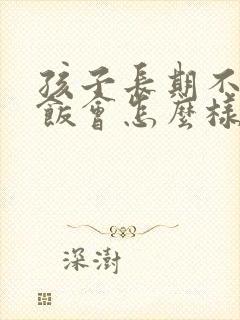 孩子長期不
飯會怎麼樣
深澍